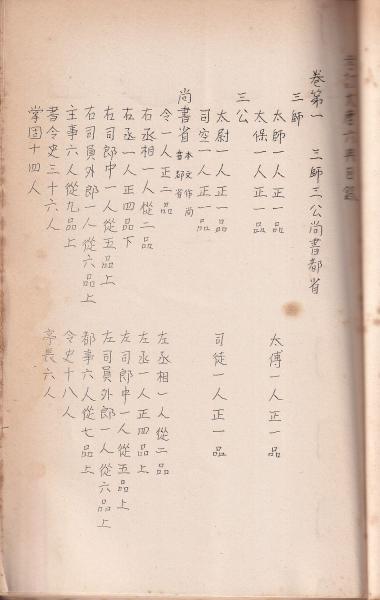 卷第一　三師三公尚書都省
三師
太師一人正一品　太傅一人正一品
太保一人正一品
三公
太尉一人正一品　司徒一人正一品
司空一人正一品
尚書省 本文作尚書都省
令一人正二品　左丞相一人從二品
右丞相一人從二品　左丞一人正四品上
右丞一人正四品下　左司郎中一人從五品上
右司郎中一人從五品上　左司員外郎一人從六品上
右司員外郎一人從六品上　都事六人從七品上
主事六人從九品上　令史十八人
書令史三十六人　亭長六人
掌固十四人